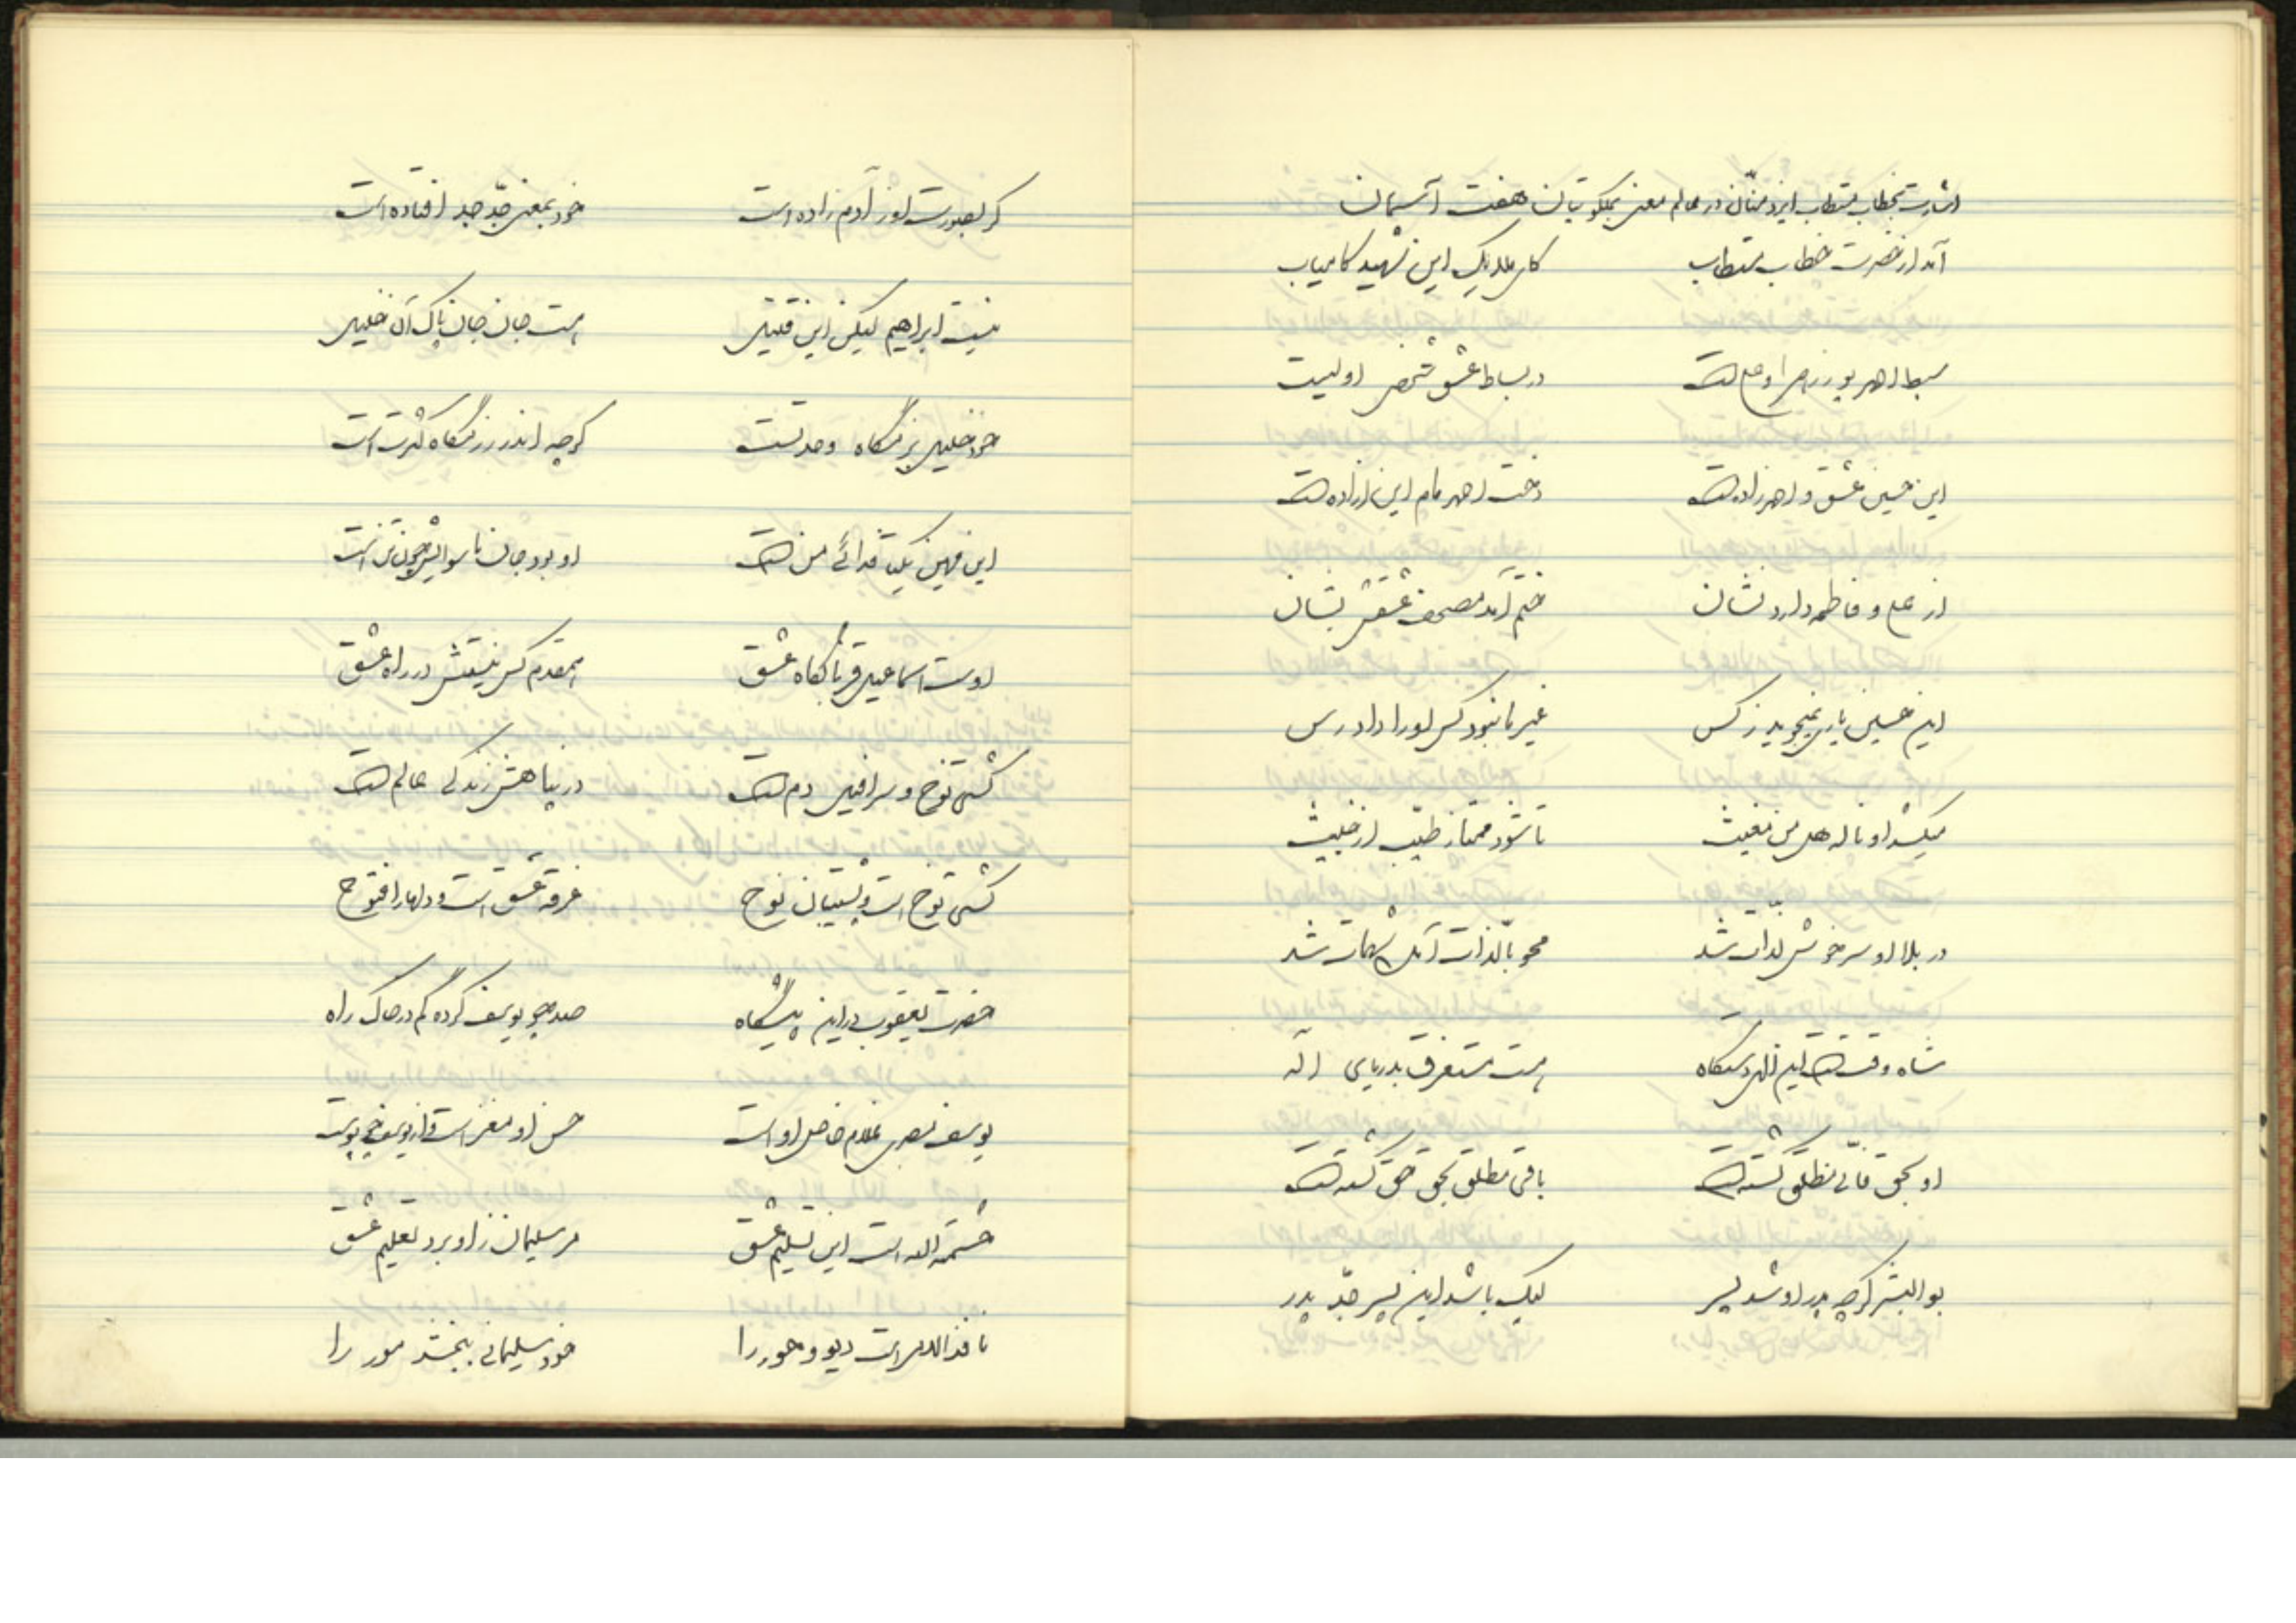 اشارت بخطاب مستطاب ایزد منّان در عالم معنی بملکوتیان هفت آسمان
آمد از حضرت خطاب مستطاب کای ملایک این شهید کامیاب
سبط احمد پور زهرا و علی است در بساط عشق شخص اولیست
این حسین عشق و احمد زاده است دخت احمد مام این آزاده است
از علی و فاطمه دارد نشان ختم آمد مصحف عشقش بشان
این حسین یاری نمیجوید ز کس غیر ما نبود کس او را دادرس
میکشد او ناله هل من مغیث تا شود ممتاز طیّب از خبیث
در بلا او سرخوش لذّات شد محو بالذّات آمد مات شد
شاه وقت است این الهی دستگاه هست مستغرق بدریای اله
او بحق فانی مطلق گشته است باقی مطلق بحق حق گشته است
بوالبشر گرچه پدر او شد پسر لیک باشد این پسر جدّ پدر
گر بصورت او ز آدم زاده است خود بمعنی جدّ جد افتاده است
نیست ابراهیم لیکن این قتیل هست جان جان پاک آن خلیل
خود خلیل بزمگاه وحدتست گرچه اندر رزمگاه کثرت است
این مهین یکتا فدائی من است او بود جان ماسوایش چون تن است
اوست اسماعیل قربانگاه عشق همقدم کس نیستش در راه عشق
کشتی نوح و سرافیل دم است در پناهش زندگی عالم است
کشتی نوح است و پشتیبان نوح غرقه عشق است و دلها را فتوح
حضرت یعقوب در این پیشگاه صد چو یوسف کرده گم در خاک راه
یوسف مصری غلام خاص او است حسن او مغز است و از یوسف چو پوست
حشمة الله است این تسلیم عشق مر سلیمان زاو برد تعلیم عشق
نافذ الامر است دیو و حور را خود سلیمانی ببخشد مور را